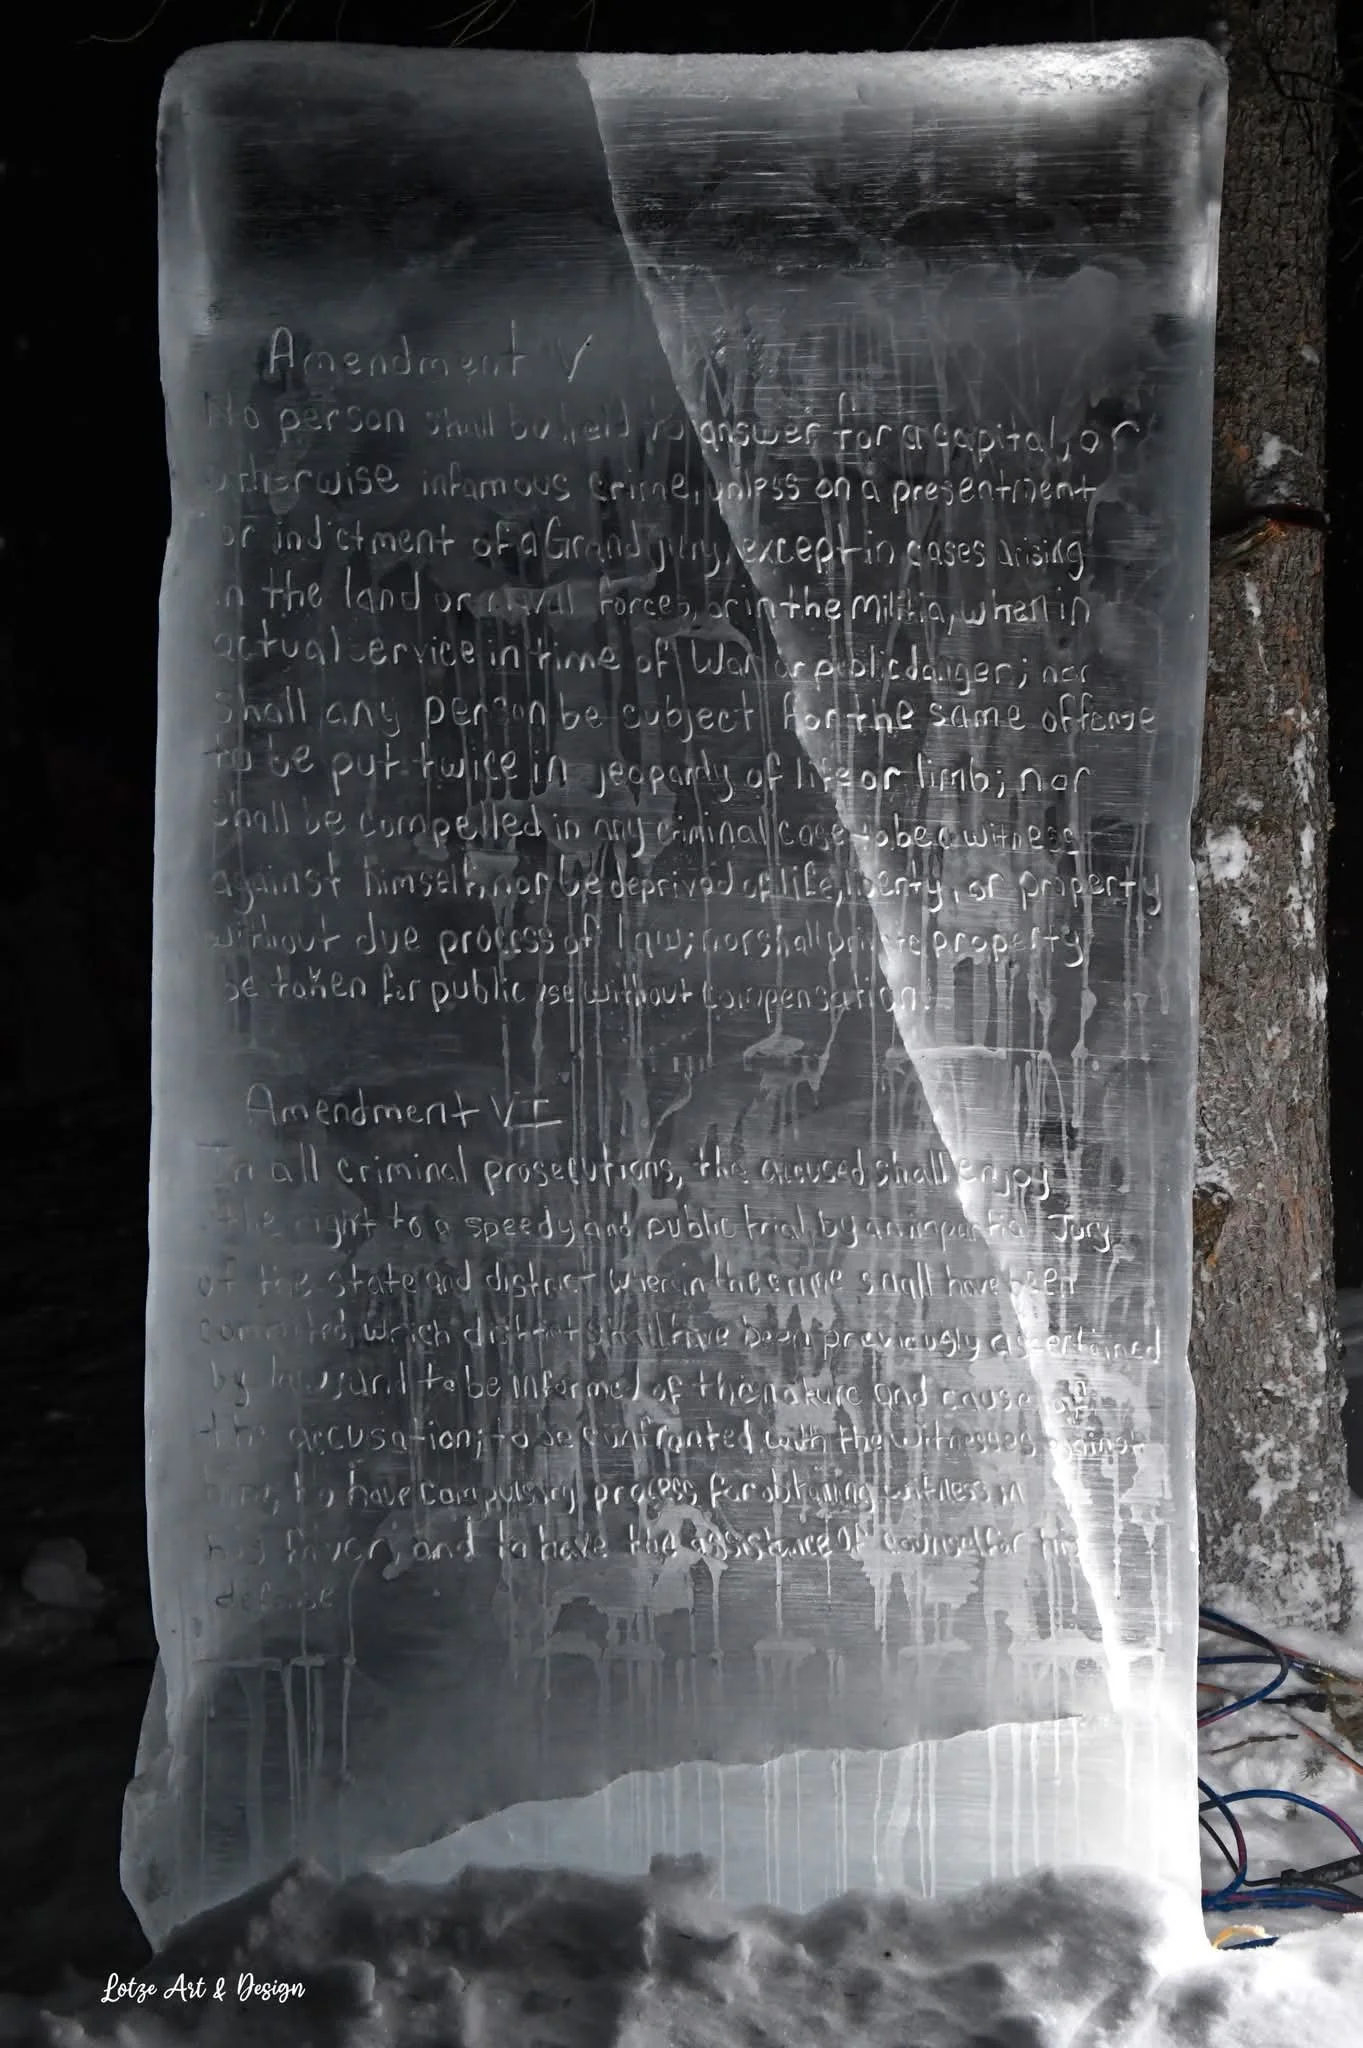 Amendment V
No person shall be held to answer for a capital, or
otherwise infamous crime, unless on a presentment
or indictment of a Grand jury, except in cases arising
in the land or naval forces, or in the Militia, when in
actual service in time of War or public danger; nor
Shall any person be subject for the same offense
to be put twice in jeopardy of life or limb; nor
shall be compelled in any criminal case to be a witness
against himself, nor be deprived of life, liberty, or property
without due process of law; nor shall private property
be taken for public use without compensation.
Amendment VI
In all criminal prosecutions, the accused shall enjoy
the right to a speedy and public trial, by an impartial Jury
of the state and district wherein the crime shall have been
commited, which district shall have been previously ascertained
by law, and to be informed of the nature and cause of
the accusation; to be confronted with the witnesses against
him; to have compulsory process for obtaining witness in
his favor, and to have the assistance of counsel for his
defense
Lotze Art & Design